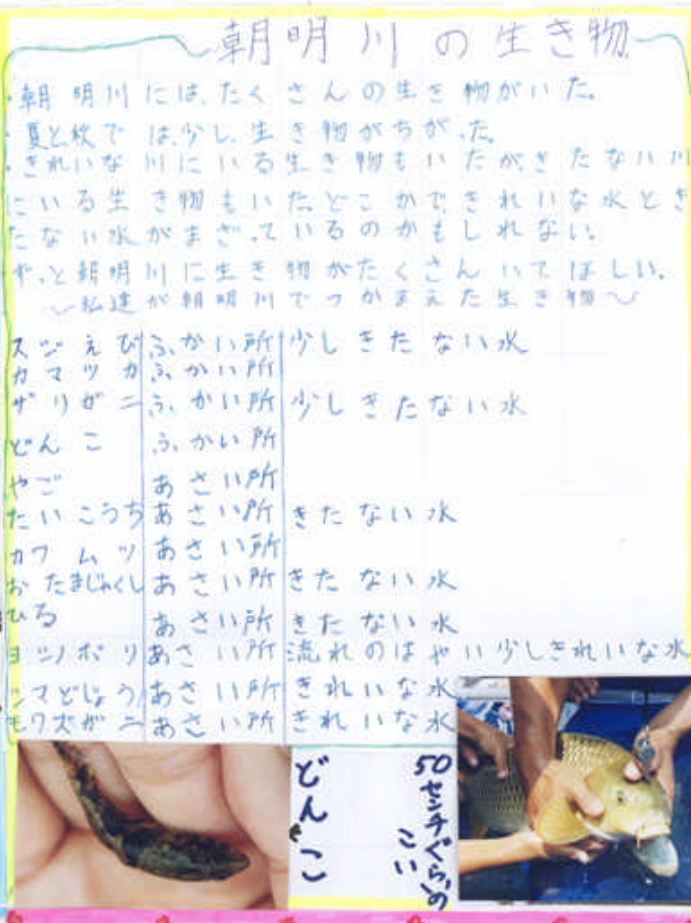 朝明川の生き物
・朝明川には、たくさんの生き物がいた。
・夏と秋では、少し、生き物がちがった。
・きれいな川にいる生き物もいたが、きたない川
にいる生き物もいた。どこかで、きれいな水とき
たない水がまざっているのかもしれない。
ずっと朝明川に生き物がたくさんいてほしい。
～私達が朝明川でつかまえた生き物～
スジえび ふかい所 少しきたない水
カマツカ ふかい所
ザリガニ ふかい所 少しきたない水
どんこ ふかい所
やご あさい所
たいこうち あさい所 きたない水
カワムツ あさい所
おたまじゃくし あさい所 きたない水
ひる あさい所 きたない水
ヨシノボリ あさい所 流れのはやい少しきれいな水
シマどじょう あさい所 きれいな水
モクズガニ あさい所 きれいな水
どんこ
50センチぐらいの
こい